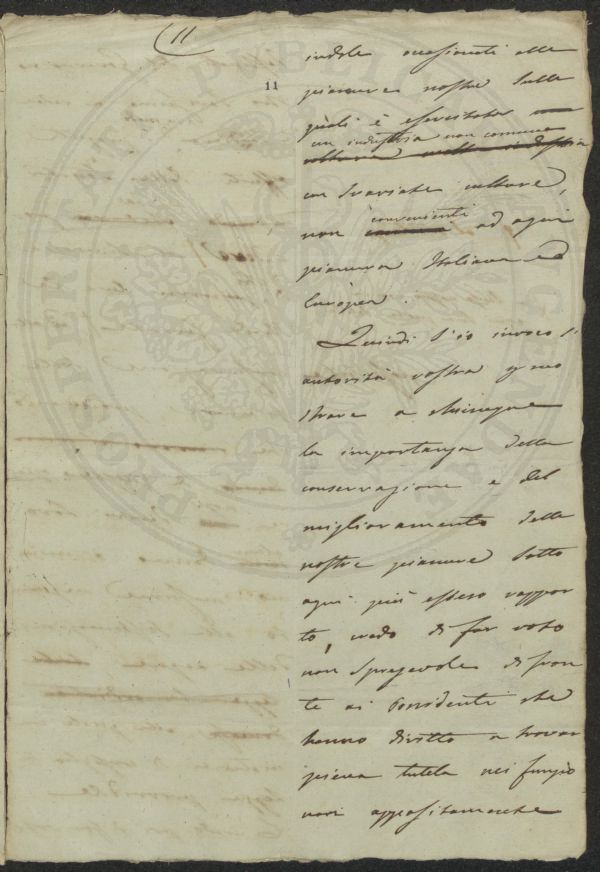 11
11
indole occasionati alle
pianure nostre sulle
quali è esercitata
un industria non comune
con svariate culture,
convenienti
non ad ogni
pianura Italiana ed
Europea.
Quindi s'io invoco l'
autorità vostra
a chiunque
la importanza della
conservazione e del
miglioramento delle
nostre pianure sotto
ogni più esteso rappor
to, credo di far voto
non spregevole di fron
te ai Possidenti che
hanno diritto a trovar
piena tutela nei funzio
nari appositamente
PUBLICAE
PROSPERITATI AUGENDAE